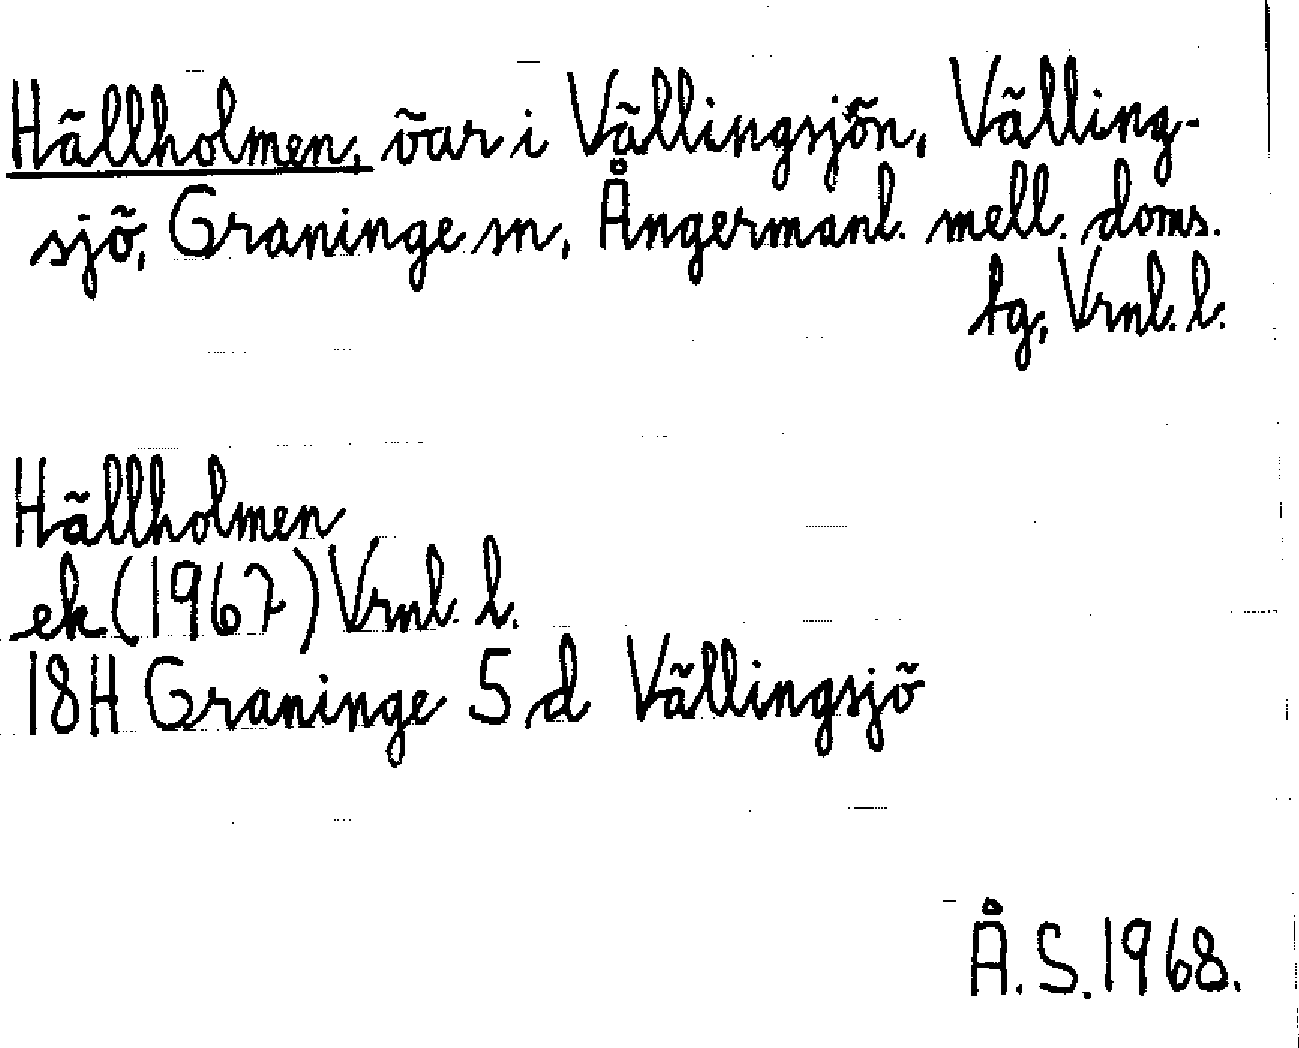 Hällholmen, öar i Vällingsjön, Välling-
sjö, Graninge sn, Ångermanl. mell. doms.
tg, Vrnl. l.
Hällholmen
ek (1967) Vrnl. l.
18H Graninge 5 d Vällingsjö
Å. S. 1968.